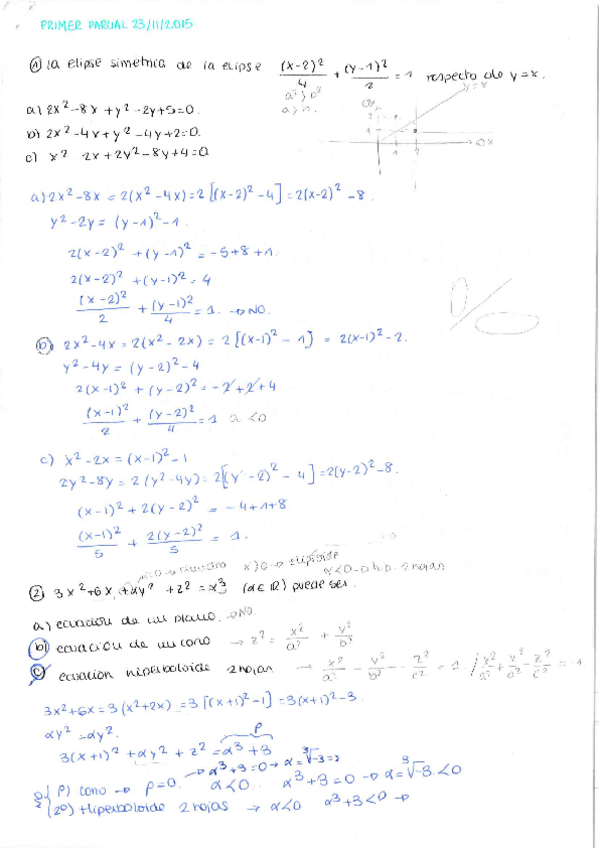 PRIMER PARCIAL 23/11/2015
① La elipse simétrica de la elipse (x-2)²/4 + (y-1)²/2 = 1 respecto de y=x.
a² > b²
y=x
a) 2x²-8x+y²-2y+5=0.
b) 2x²-4x+y²-4y+2=0.
c) x² 2x+2y²-8y+4=0
a) 2x²-8x = 2(x²-4x) = 2[(x-2)²-4] = 2(x-2)²-8.
y²-2y = (y-1)²-1.
2(x-2)²+(y-1)² = -5+8+1.
2(x-2)²+(y-1)² = 4
(x-2)²/2 + (y-1)²/4 = 1. → NO.
b) 2x²-4x = 2(x²-2x) = 2[(x-1)²-1] = 2(x-1)²-2.
y²-4y = (y-2)²-4
2(x-1)²+(y-2)² = -2+2+4
(x-1)²/2 + (y-2)²/4 = 1 a<0
c) x²-2x = (x-1)²-1
2y²-8y = 2(y²-4y) = 2[(y-2)²-4] = 2(y-2)²-8.
(x-1)²+2(y-2)² = -4+1+8
(x-1)²/5 + 2(y-2)²/5 = 1.
elipsoide
2 hojas
② 3x²+6x+αy²+z² = α³ (α∈ℝ) puede ser
a) ecuación de un plano. → NO.
b) ecuación de un cono → z² = x²/a² + y²/b²
c) ecuación hiperboloide 2 hojas → x²/a² - y²/b² - z²/c² = 1. / x²/a² + y²/a² - z²/c² = -1
3x²+6x = 3(x²+2x) = 3[(x+1)²-1] = 3(x+1)²-3.
αy² = αy².
P
3(x+1)²+αy²+z² = α³+3
→ α³+3=0 → α=∛-3
1º) Cono → P=0. α<0. α³+3=0 → α=∛-3 <0
2º) Hiperboloide 2 hojas → α<0 α³+3<0 →